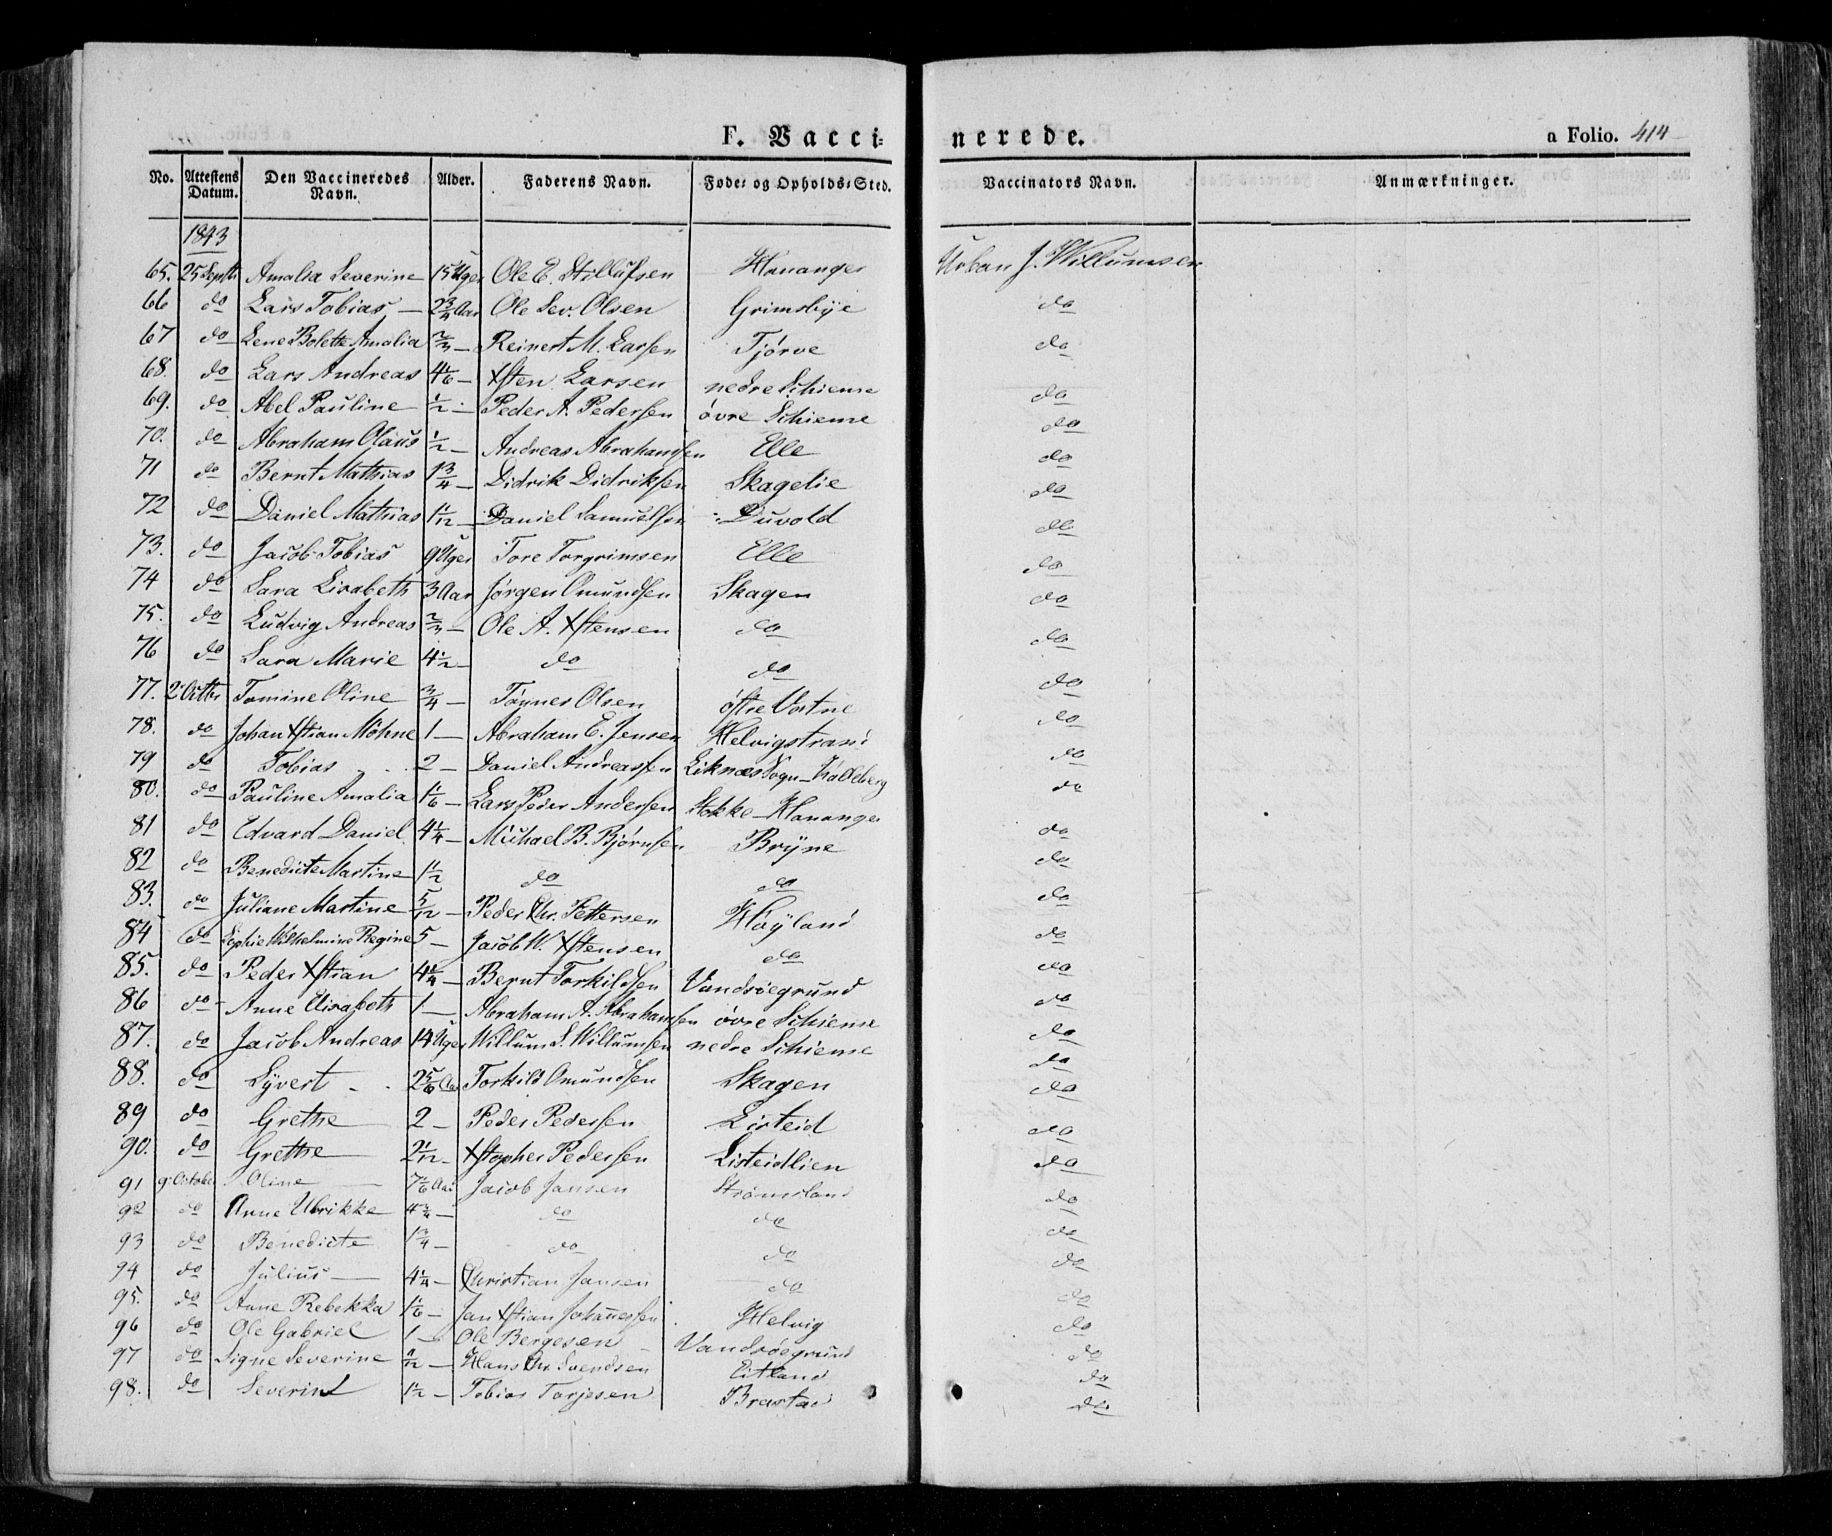 F. Vaccinerede. a Folio. 414
No. | Attestens Datum. | Den Vaccineredes Navn. | Alder. | Faderens Navn. | Føde- og Opholds-Sted. | Vaccinators Navn. | Anmærkninger.
1843
65. | 25 Septb | Amalia Severine | 15 Uger | Ole E. | Hananger | Urban J. Willumsen
66 | do | Lars Tobias, — | 2 3/4 Aar | Ole Sev. Olsen | Grimsbye | do
67 | do | Lene Bolette Amalia | 2/3 — | Reinert M. Larsen | Tjørve | do
68. | do | Lars Andreas | 4 1/6 — | Xsten Larsen | nedre Schieme | do
69. | do | Abel Pauline | 1/2 — | Peder A. Pedersen | øvre Schieme | do
70. | do | Abraham Olaus | 1/2 — | Andreas Abrahamsen | Elle | do
71 | do | Bernt Mathias | 1 3/4 — | Didrik Didriksen | Skagelie | do
72 | do | Daniel Mathias | 1 1/12 — | Daniel Samuelsen | Duvold | do
73. | do | Jacob Tobias | 9 Uger | Tore Torgrimsen | Elle | do
74 | do | Sara Lisabeth | 3 Aar | Jørgen Omundsen | Skagen | do
75. | do | Ludvig Andreas | 2/3 — | Ole A. Xstensen | do | do
76 | do | Sara Marie | 4 1/2 — | do | do | do
77. | 2 Octbr | Tomine Oline | 3/4 — | Tønnes Olsen | østre Vatne | do
78. | do | Johan Xstian Möhne | 1 — | Abraham E. Jensen | Helvigstrand | do
79 | do | Tobias | 2 — | Daniel Andreassen | Liknæs Sogn — Kalleberg | do
80. | do | Pauline Amalia | 1 1/6 — | Lars Peder Andersen | Stokke — Hananger | do
81 | do | Edvard Daniel | 4 1/4 — | Michael B. Bjørnsen | Bryne | do
82 | do | Benedicte Martine | 1 1/2 | do | do | do
83. | do | Juliane Martine | 5/12 — | Peder Chr. Pettersen | Høyland | do
84 | do | Sophie Wilhelmine Regine | 5 — | Jacob W. Xstensen | do | do
85. | do | Peder Xstian | 4 1/4 — | Bernt Torkildsen | Vandsøegrund | do
86 | do | Anne Elisabeth | 1 — | Abraham A. Abrahamsen | øvre Schieme | do
87. | do | Jacob Andreas | 14 Uger | Willum S. Willumsen | nedre Schieme | do
do
88. | do | Syvert | 2 5/6 Aar | Torkild Omundsen | Skagen | do
89 | do | Grethe | 2 — | Peder Pedersen | Listeid | do
90. | do | Grethe — | 2 1/12 — | Xstopher Pedersen | Listeidlien | do
91 | 9 October | Oline — | 7 1/6 Aar | Jacob Jansen | Strømsland | do
92 | do | Anne Ulrikke | 4 3/4 — | do | do | do
93 | do | Benedicte | 1 3/4 — | do | do | do
94 | do | Julius — | 4 1/4 — | Christian Jansen | do | do
95. | do | Anne Rebekka | 1 1/6 — | Jan Xstian Johannessen | Helvig | do
96 | do | Ole Gabriel | 1 — | Ole Bergesen | Vandsøegrund | do
97 | do | Signe Severine | 11/12 — | Hans Chr. Svendsen | Eitland | do
98. | do | Severin | 1 1/2 — | Tobias Tarjesen | Brastad | do